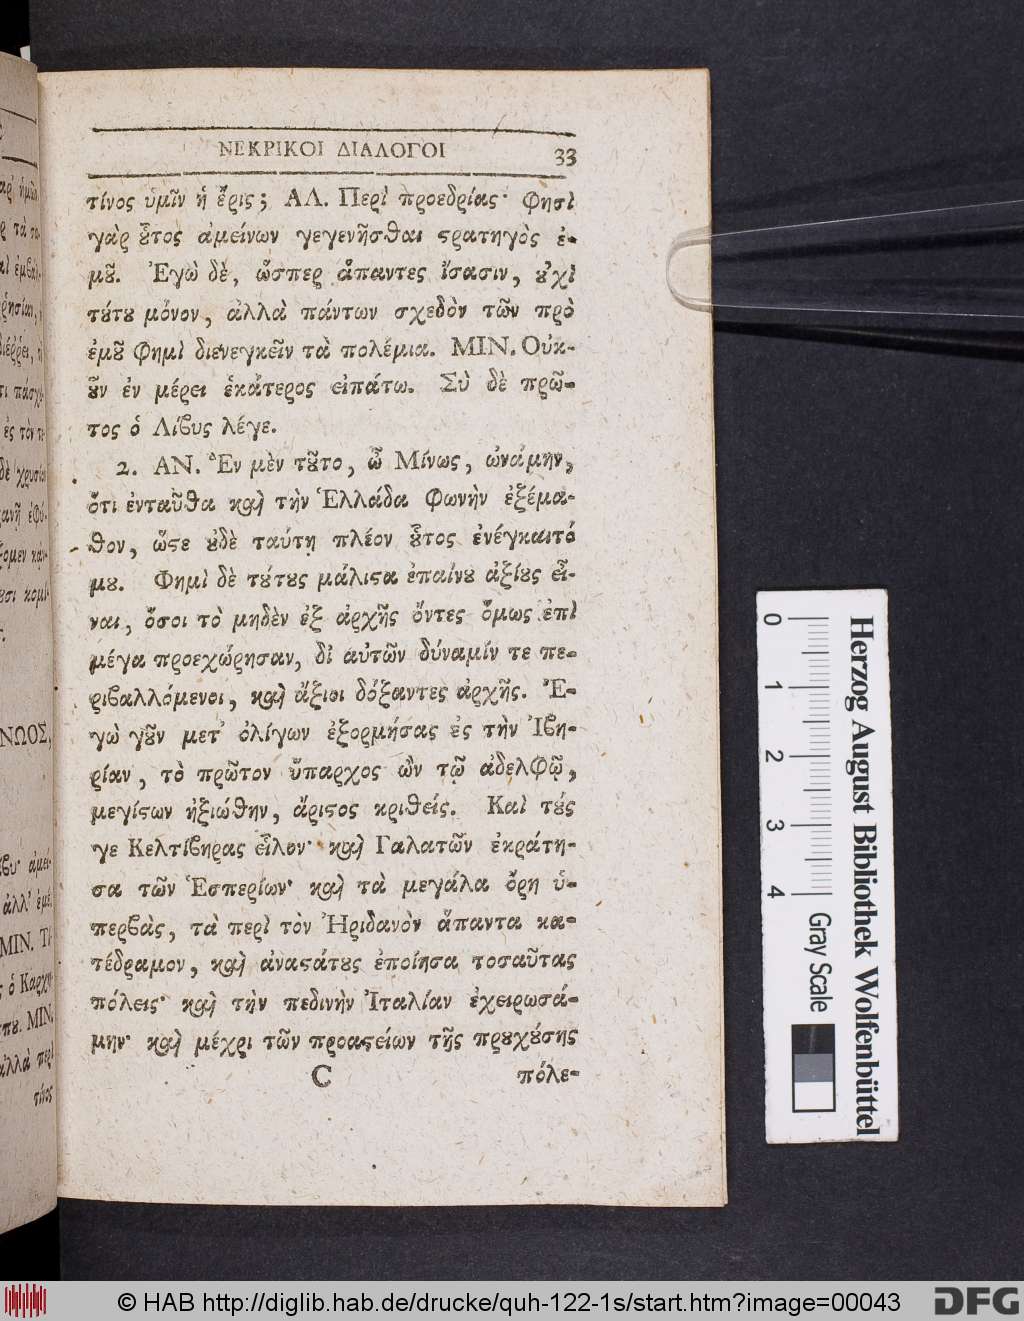 ΝΕΚΡΙΚΟΙ ΔΙΑΛΟΓΟΙ 33
τίνος ὑμῖν ἡ ἔρις; ΑΛ. Περὶ προεδρίας· Φησὶ
γὰρ ȣ̓͂τος ἀμείνων γεγενῆσθαι ϛρατηγὸς ἐ-
μȣ͂. Ἐγὼ δὲ, ὥσπερ ἅπαντες ἴσασιν, ȣ̓χὶ
τȣ́τȣ μόνον, ἀλλὰ πάντων σχεδὸν τῶν πρὸ
ἐμȣ͂ φημὶ διενεγκεῖν τὰ πολέμια. ΜΙΝ. Οὐκ-
ȣ͂ν ἐν μέρει ἑκάτερος εἰπάτω. Σὺ δὲ πρῶ-
τος ὁ Λίβυς λέγε.
2. ΑΝ. Ἓν μὲν τȣ͂το, ὦ Μίνως, ὠνάμην,
ὅτι ἐνταῦθα καὶ τὴν Ἑλλάδα φωνὴν ἐξέμα-
θον, ὥϛε ȣ̓δὲ ταύτῃ πλέον ȣ̔͂τος ἐνέγκαιτό
μȣ. Φημὶ δὲ τȣ́τȣς μάλιϛα ἐπαίνȣ ἀξίȣς εἶ-
ναι, ὅσοι τὸ μηδὲν ἐξ ἀρχῆς ὄντες ὅμως ἐπὶ
μέγα προεχώρησαν, δἰ αὑτῶν δύναμίν τε πε-
ριβαλλόμενοι, καὶ ἄξιοι δόξαντες ἀρχῆς. Ἐ-
γὼ γȣ͂ν μετ' ὀλίγων ἐξορμήσας ἐς τὴν Ἰβη-
ρίαν, τὸ πρῶτον ὕπαρχος ὢν τῷ ἀδελφῷ,
μεγίϛων ἠξιώθην, ἄριϛος κριθείς. Καὶ τȣ́ς
γε Κελτίβηρας εἷλον· καὶ Γαλατῶν ἐκράτη-
σα τῶν Ἑσπερίων· καὶ τὰ μεγάλα ὄρη ὑ-
περβὰς, τὰ περὶ τὸν Ἠριδανὸν ἅπαντα κα-
τέδραμον, καὶ ἀναϛάτȣς ἐποίησα τοσαῦτας
πόλεις· καὶ τὴν πεδινὴν Ἰταλίαν ἐχειρωσά-
μην· καὶ μέχρι τῶν προαϛείων τῆς πρȣχȣ́σης
C πόλε-
0 1 2 3 4 Gray Scale
Herzog August Bibliothek Wolfenbüttel
© HAB http://diglib.hab.de/drucke/quh-122-1s/start.htm?image=00043
DFG